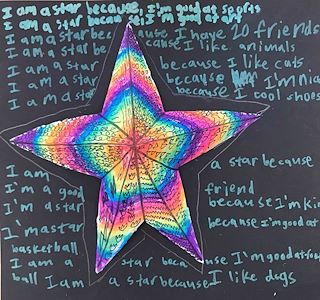 I am a star because, I'm good at sports
I am a star because I'm good at art
I am a star because I have 20 friends
I am a star because I like animals
I am a star because I like cats
I am a star because I'm nice
I am a star because I cool shoes
I am a star because
I'm a good friend
I'm a star because I'm ki
I'm a star because I'm good at
basketball
I am a star because I'm good at
ball I am a star because I like dogs